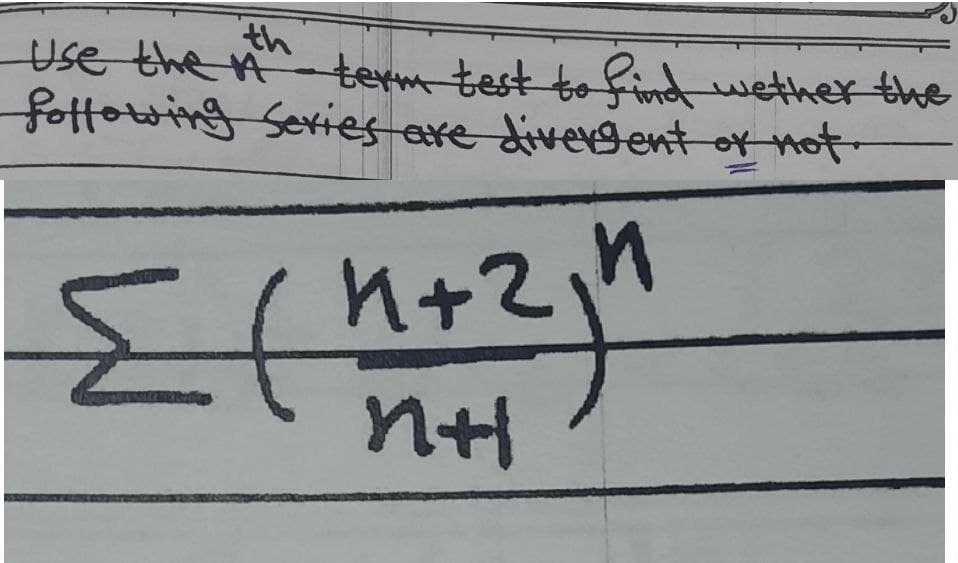 Use the nth - term test to find wether the
following series are divergent or not.
Σ (n+2/n+1)^n